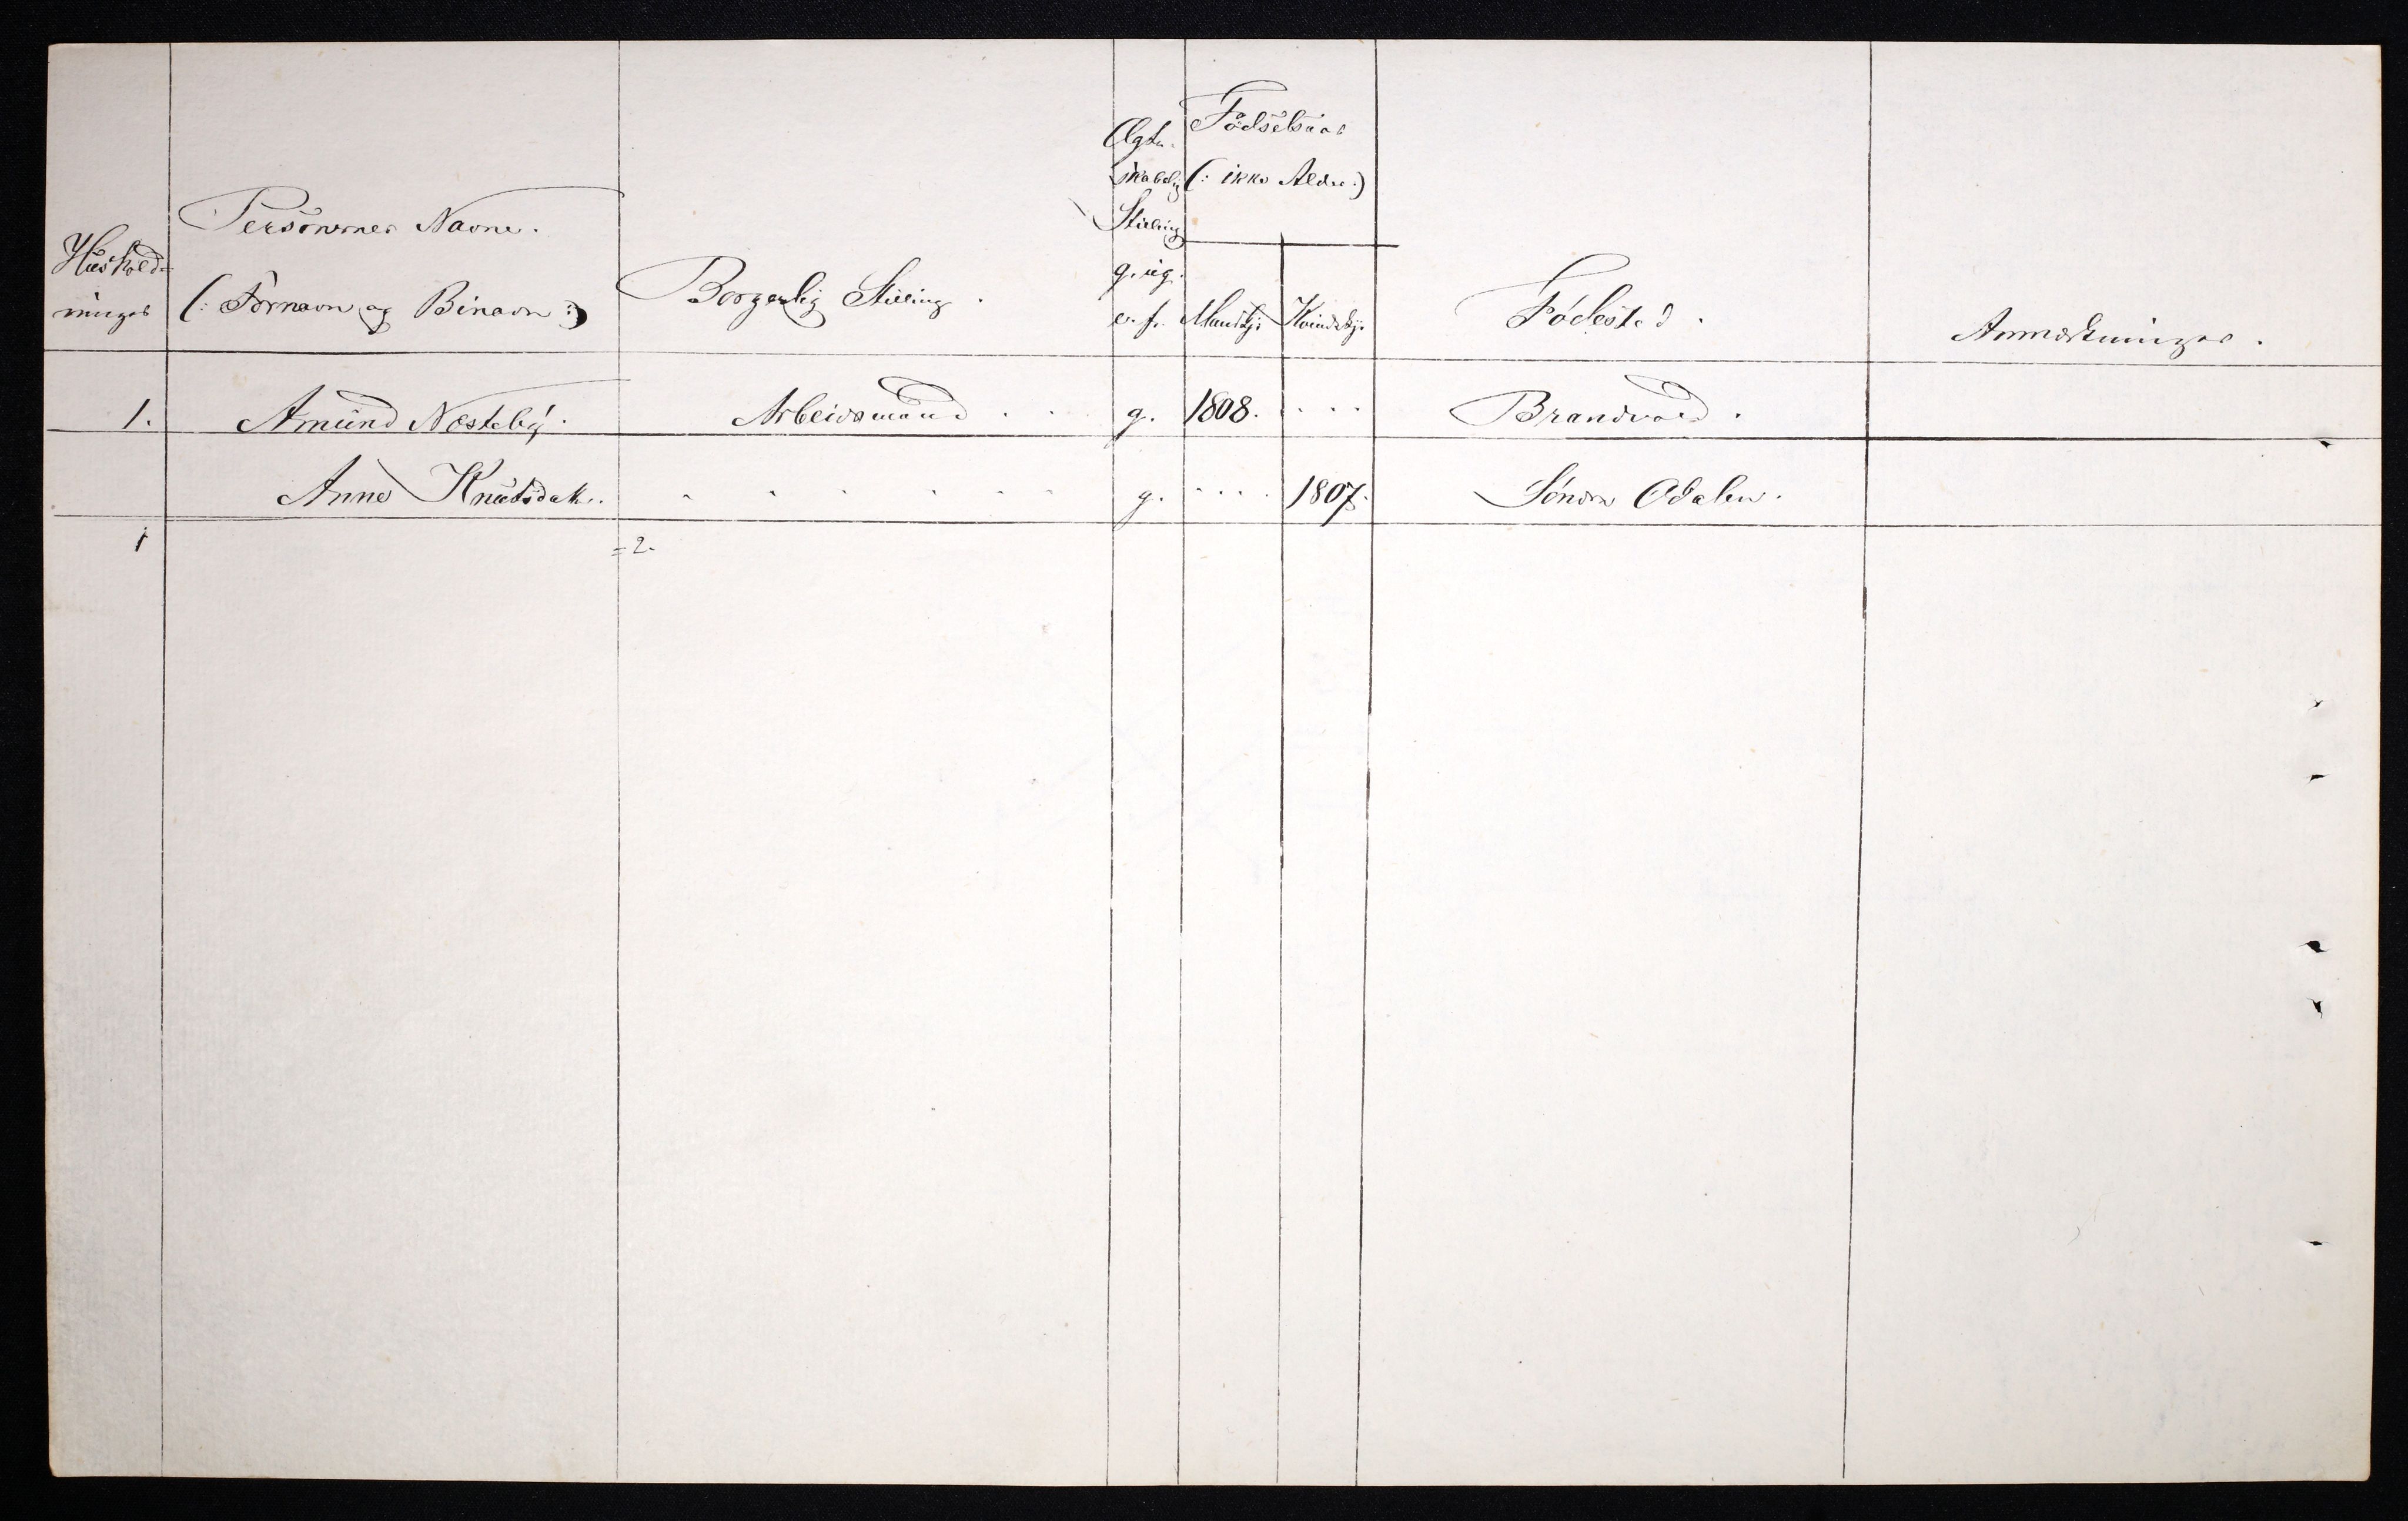 Huushold-
ninger
Personernes Navne.
(: Fornavn og Binavn :)
Borgerlig Stilling.
Ægte-
skabelig
Stilling
g. ug.
e. f.
Fødselsaar
(: ikke Alder :)
Mandkj. Kvindekj.
Fødested.
Anmærkninger.
1. Amund Næsteby. Arbeidsmand . . . g. 1808. . . . Brandvold.
Anne Knutsdatt. . . . . . . g. . . . . 1807. Søndre Odalen.
1 = 2.